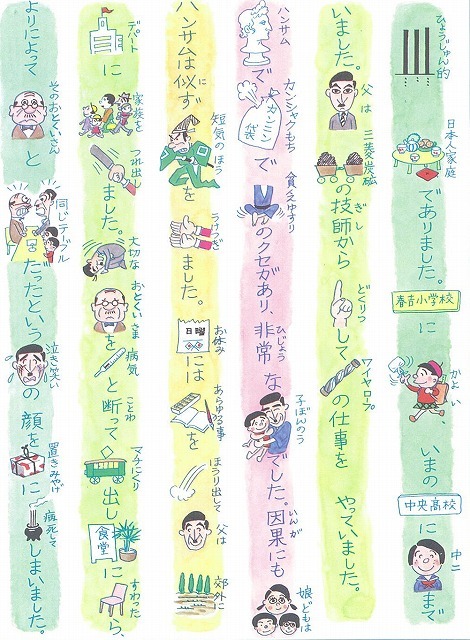 ひょうじゅん的 日本人家庭 でありました。 春吉小学校 に かよい、いまの 中央高校 に 中二 まで
いました。 父は 三菱炭砿 の技師から ぎし どくりつ して、 ワイヤロープ の仕事を やっていました。
ハンサム で カンシャクもち カンニン で 貧乏ゆすり のクセがあり、非常な ひじょう 子ぼんのう でした。因果にも いんが 娘どもは
ハンサムは似ず に 短気のほう を うけつぎ ました。 お休み 日曜 には あらゆる事 を ほうり出して 父は 郊外に
デパート に 家族を つれ出し ました。 大切な おとくいさま を 病気 と断って ことわ マチにくり 出し 食堂 に すわった ら、
よりによって そのおとくいさん と 同じテーブル だったという 泣き笑い の顔を 置きみやげ に 病死して しまいました。